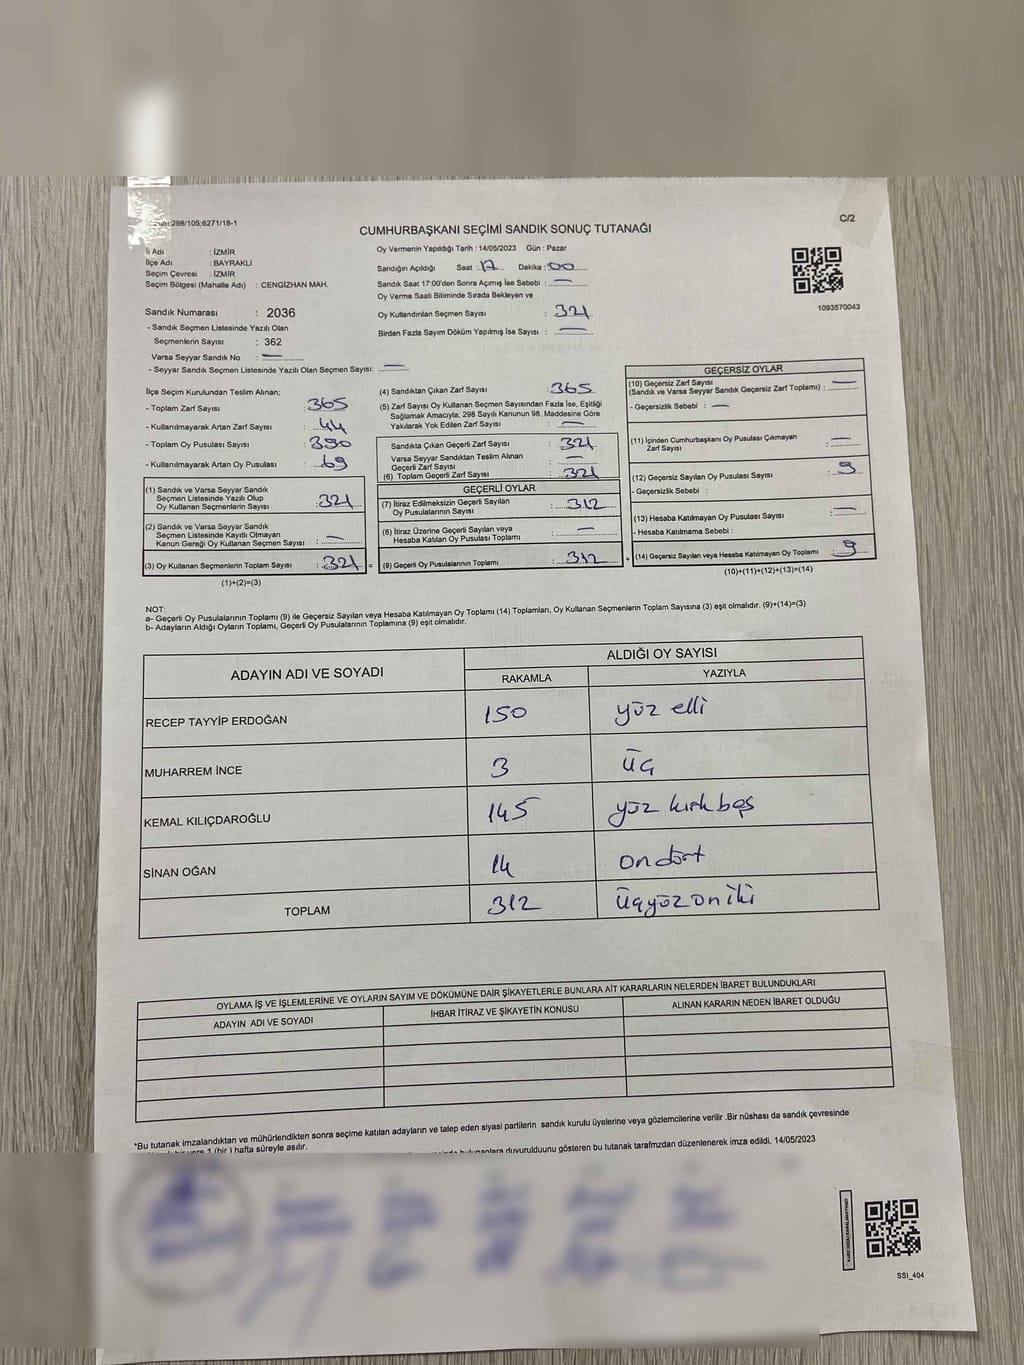 298/105;6271/18-1
C/2
CUMHURBAŞKANI SEÇİMİ SANDIK SONUÇ TUTANAĞI
İl Adı : İZMİR
İlçe Adı : BAYRAKLI
Seçim Çevresi : İZMİR
Seçim Bölgesi (Mahalle Adı) : CENGİZHAN MAH.
Oy Vermenin Yapıldığı Tarih : 14/05/2023 Gün : Pazar
Sandığın Açıldığı Saat : 17 Dakika : 00
Sandık Saat 17:00'den Sonra Açımış İse Sebebi : —
Oy Verme Saati Bitiminde Sırada Bekleyen ve
Oy Kullandırılan Seçmen Sayısı : 321
Birden Fazla Sayım Döküm Yapılmış İse Sayısı : —
1093570043
Sandık Numarası : 2036
- Sandık Seçmen Listesinde Yazılı Olan
Seçmenlerin Sayısı : 362
Varsa Seyyar Sandık No : —
- Seyyar Sandık Seçmen Listesinde Yazılı Olan Seçmen Sayısı: —
İlçe Seçim Kurulundan Teslim Alınan;
- Toplam Zarf Sayısı : 365
- Kullanılmayarak Artan Zarf Sayısı : 44
- Toplam Oy Pusulası Sayısı : 390
- Kullanılmayarak Artan Oy Pusulası : 69
(1) Sandık ve Varsa Seyyar Sandık
Seçmen Listesinde Yazılı Olup
Oy Kullanan Seçmenlerin Sayısı : 321
(2) Sandık ve Varsa Seyyar Sandık
Seçmen Listesinde Kayıtlı Olmayan
Kanun Gereği Oy Kullanan Seçmen Sayısı : —
(3) Oy Kullanan Seçmenlerin Toplam Sayısı : 321 =
(1)+(2)=(3)
(4) Sandıktan Çıkan Zarf Sayısı : 365
(5) Zarf Sayısı Oy Kullanan Seçmen Sayısından Fazla İse, Eşitliği
Sağlamak Amacıyla; 298 Sayılı Kanunun 98. Maddesine Göre
Yakılarak Yok Edilen Zarf Sayısı : —
Sandıkta Çıkan Geçerli Zarf Sayısı : 321
Varsa Seyyar Sandıktan Teslim Alınan
Geçerli Zarf Sayısı : —
(6) Toplam Geçerli Zarf Sayısı : 321
GEÇERLİ OYLAR
(7) İtiraz Edilmeksizin Geçerli Sayılan
Oy Pusulalarının Sayısı : 312
(8) İtiraz Üzerine Geçerli Sayılan veya
Hesaba Katılan Oy Pusulası Toplamı : —
(9) Geçerli Oy Pusulalarının Toplamı : 312 +
GEÇERSİZ OYLAR
(10) Geçersiz Zarf Sayısı
(Sandık ve Varsa Seyyar Sandık Geçersiz Zarf Toplamı) : —
- Geçersizlik Sebebi : —
(11) İçinden Cumhurbaşkanı Oy Pusulası Çıkmayan
Zarf Sayısı : —
(12) Geçersiz Sayılan Oy Pusulası Sayısı : 9
- Geçersizlik Sebebi :
(13) Hesaba Katılmayan Oy Pusulası Sayısı : —
- Hesaba Katılmama Sebebi :
(14) Geçersiz Sayılan veya Hesaba Katılmayan Oy Toplamı : 9
(10)+(11)+(12)+(13)=(14)
NOT:
a- Geçerli Oy Pusulalarının Toplamı (9) ile Geçersiz Sayılan veya Hesaba Katılmayan Oy Toplamı (14) Toplamları, Oy Kullanan Seçmenlerin Toplam Sayısına (3) eşit olmalıdır. (9)+(14)=(3)
b- Adayların Aldığı Oyların Toplamı, Geçerli Oy Pusulalarının Toplamına (9) eşit olmalıdır.
ADAYIN ADI VE SOYADI ALDIĞI OY SAYISI
RAKAMLA YAZIYLA
RECEP TAYYİP ERDOĞAN 150 yüz elli
MUHARREM İNCE 3 üç
KEMAL KILIÇDAROĞLU 145 yüz kırk beş
SİNAN OĞAN 14 on dört
TOPLAM 312 üçyüz on iki
OYLAMA İŞ VE İŞLEMLERİNE VE OYLARIN SAYIM VE DÖKÜMÜNE DAİR ŞİKAYETLERLE BUNLARA AİT KARARLARIN NELERDEN İBARET BULUNDUKLARI
ADAYIN ADI VE SOYADI İHBAR İTİRAZ VE ŞİKAYETİN KONUSU ALINAN KARARIN NEDEN İBARET OLDUĞU
*Bu tutanak imzalandıktan ve mühürlendikten sonra seçime katılan adayların ve talep eden siyasi partilerin sandık kurulu üyelerine veya gözlemcilerine verilir .Bir nüshası da sandık çevresinde
1 (bir ) hafta süreyle asılır.
duyurulduunu gösteren bu tutanak tarafımzdan düzenlenerek imza edildi. 14/05/2023
SSI_404